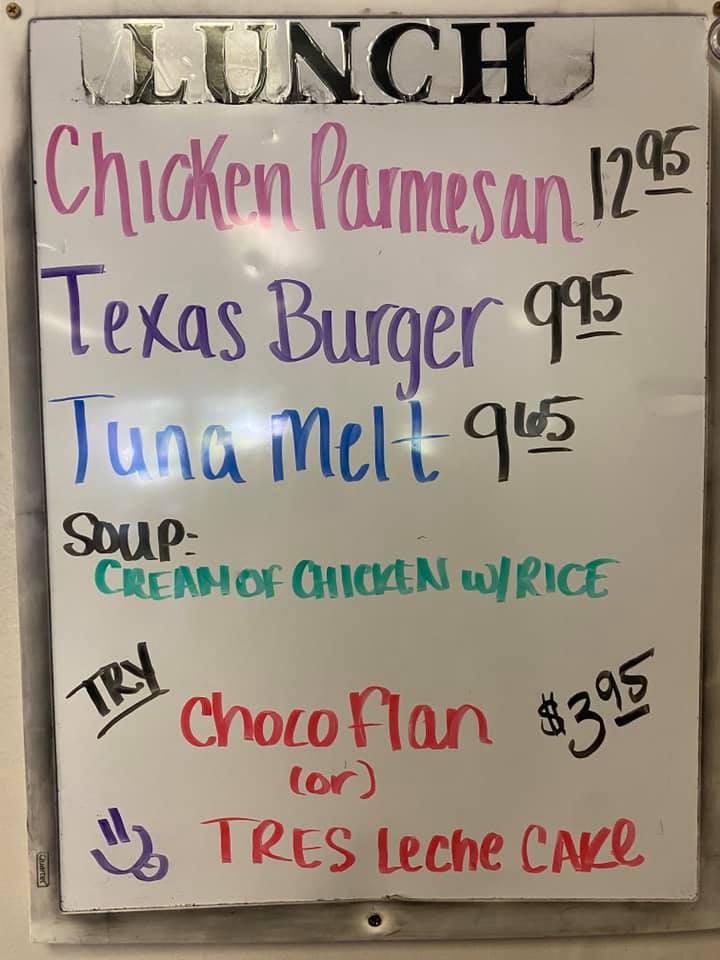 LUNCH
Chicken Parmesan 12 95
Texas Burger 9 95
Tuna Melt 9 65
SOUP:
CREAM OF CHICKEN W/RICE
TRY
Choco Flan $3 95
(or)
TRES Leche CAKe
Quartet